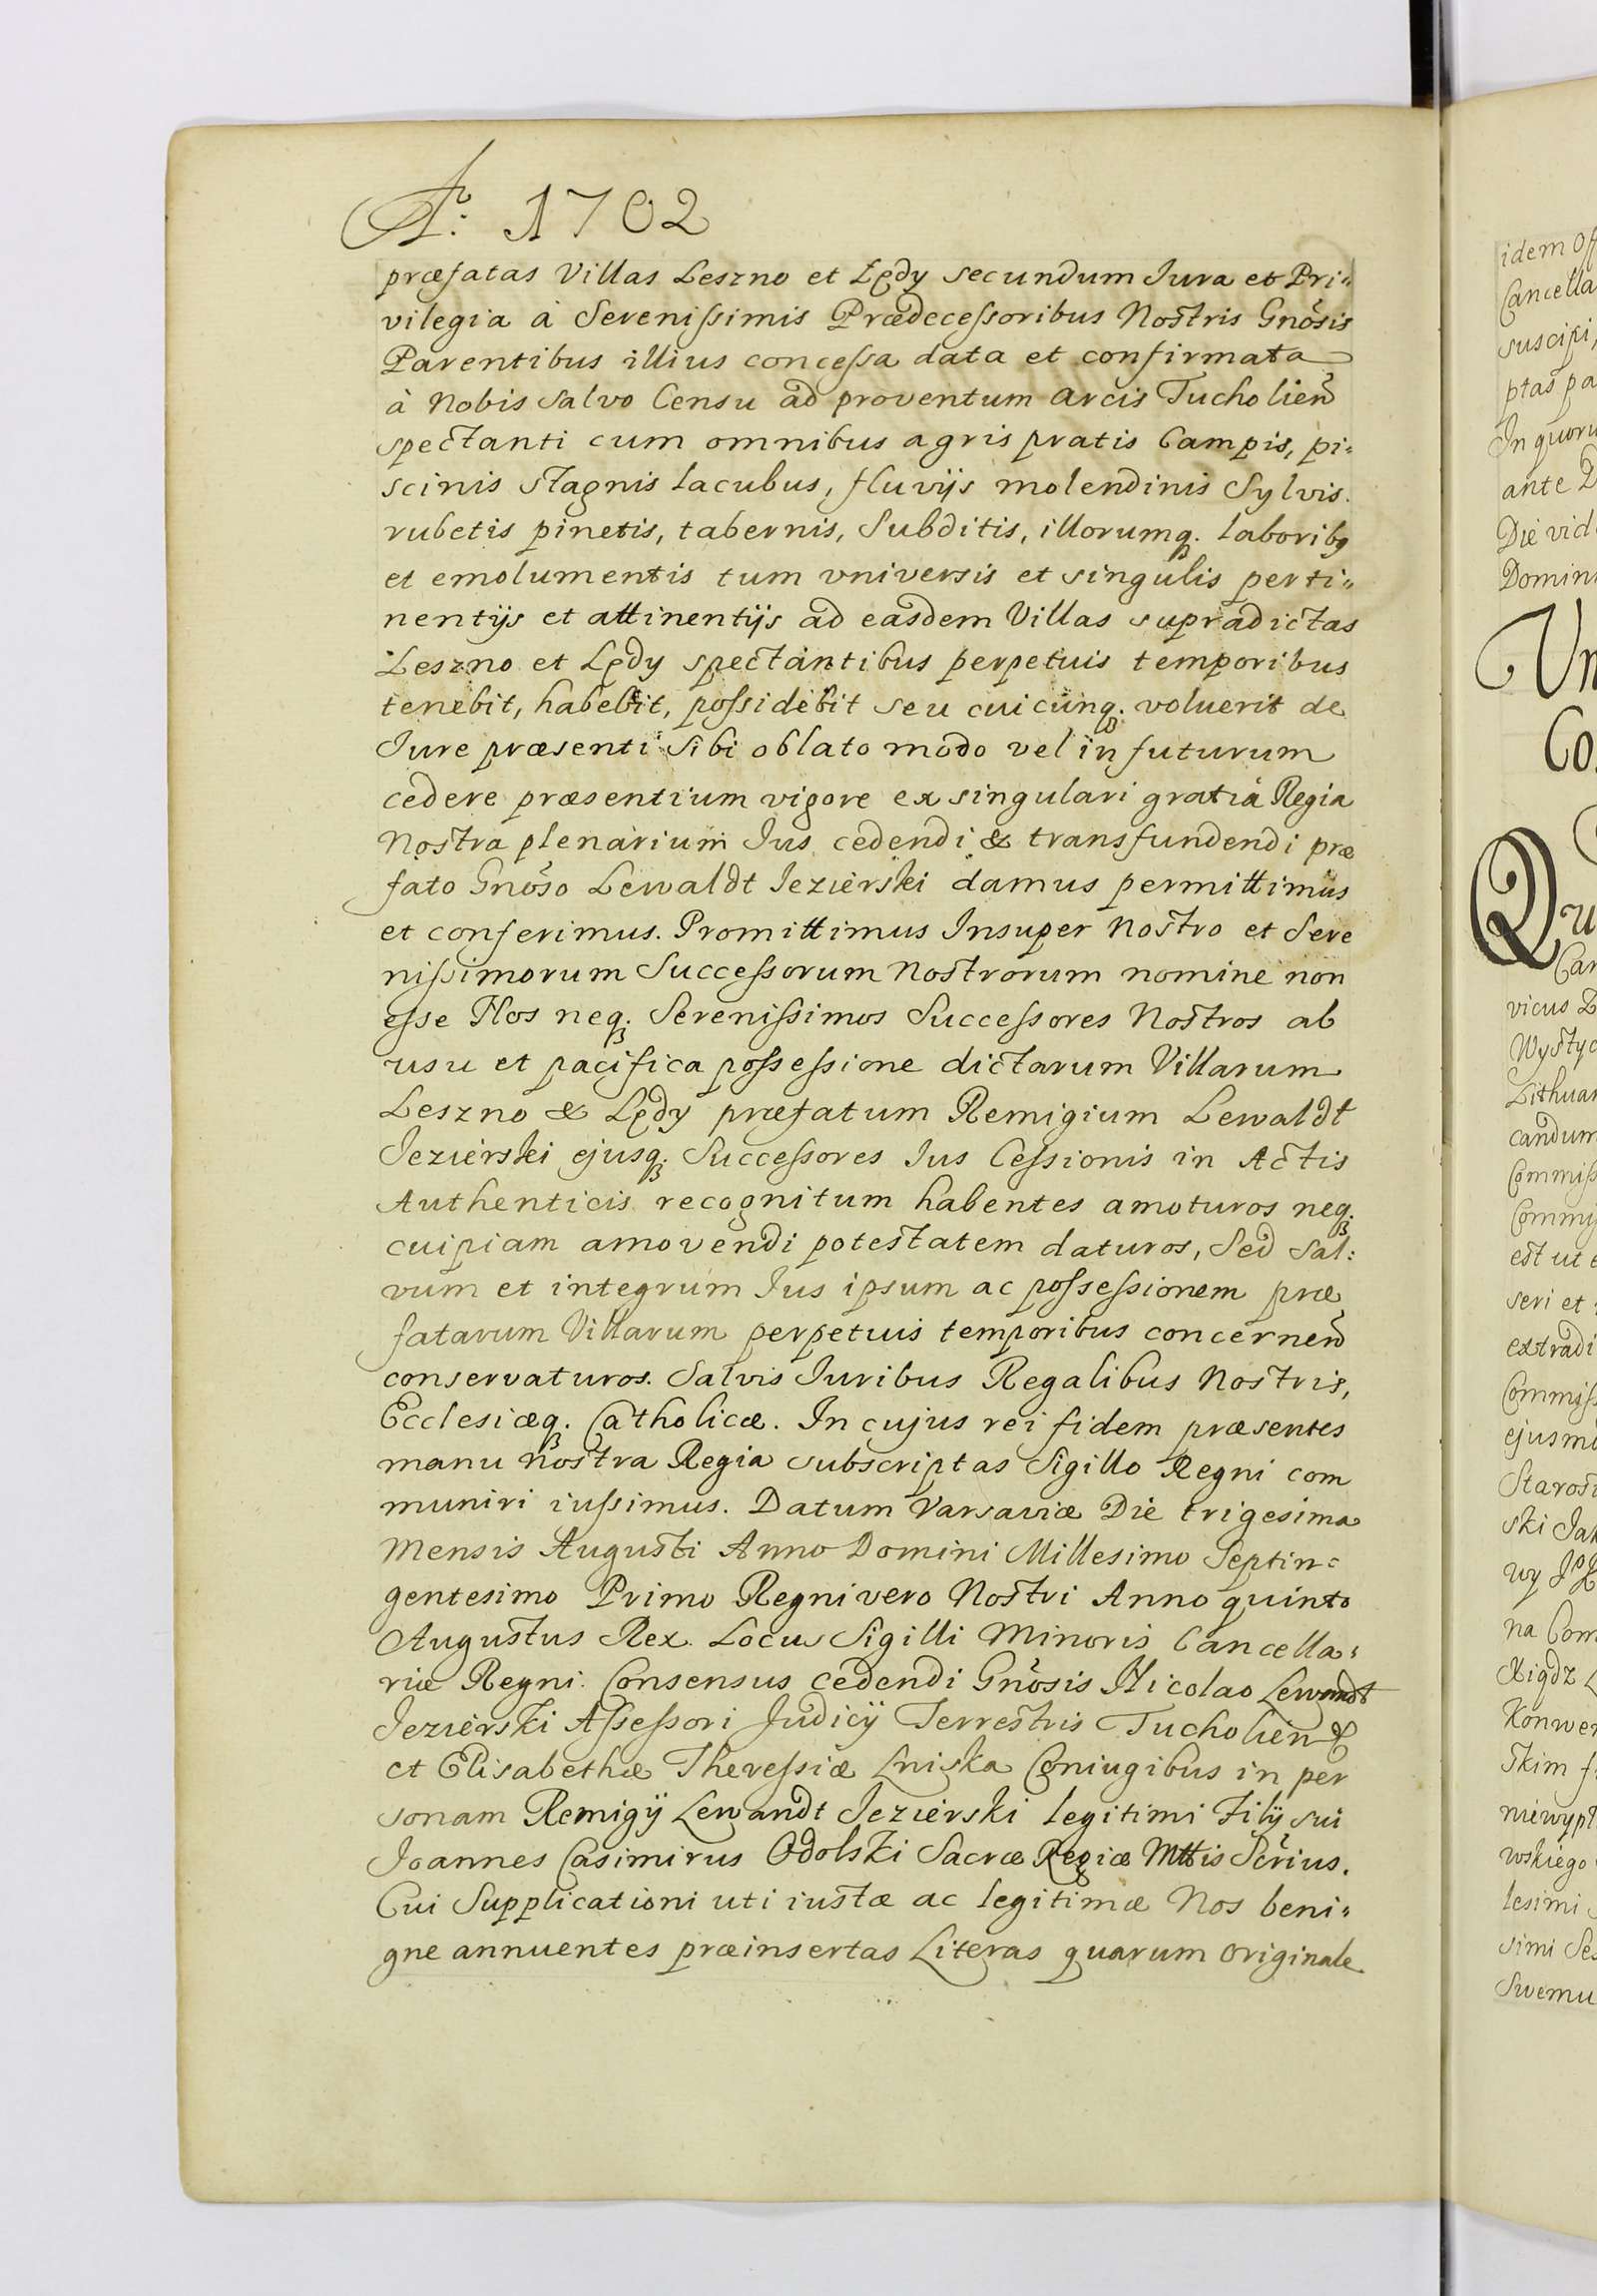 Aᵒ: 1702
præfatas Villas Leszno et Lędy secundum Iura et Pri„
vilegia à Serenissimis Prædecessoribus Nostris Gnõsis
Parentibus illius concessa data et confirmata
à Nobis salvo Censu ad proventum arcis Tucholien̄
spectanti cum omnibus agris pratis Campis, pi:
scinis stagnis lacubus, fluvijs molendinis Sylvis.
rubetis pinetis, tabernis, Subditis, illorumq. laborib9
et emolumentis tum vniversis et singulis perti„
nentijs et attinentijs ad easdem Villas supradictas
Leszno et Lędy spectantibus perpetuis temporibus
tenebit, habebit, possidebit seu cuicunq. voluerit de
Iure præsenti sibi oblato modo vel in futurum
cedere præsentium vigore ex singulari gratiâ Regia
Nostra plenarium Ius cedendi & transfundendi præ
fato Gnõso Lewaldt Iezierski damus permittimus
et conferimus. Promittimus Insuper Nostro et Sere
nissimorum Successorum nostrorum nomine non
esse Nos neq. Serenissimos Successores Nostros ab
usu et pacifica possessione dictarum Villarum
Leszno & Lędy præfatum Remigium Lewaldt
Iezierski ejusq. Successores Ius Cessionis in Actis
Authenticis recognitum habentes amoturos neq.
cuipiam amovendi potestatem daturos, Sed Sal:
vum et integrum Ius ipsum ac possessionem præ
fatarum Villarum perpetuis temporibus concernen̄
conservaturos. Salvis Iuribus Regalibus Nostris,
Ecclesiæq. Catholicæ. In cujus rei fidem præsentes
manu nostra Regia subscriptas Sigillo Regni com
muniri iussimus. Datum Varsaviæ Die trigesima
Mensis Augusti Anno Domini Millesimo Septin=
gentesimo Primo Regni vero Nostri Anno quinto
Augustus Rex. Locus Sigilli Minoris Cancella:
riæ Regni. Consensus cedendi Gnõsis Nicolao Lewandt
Iezierski Assessori Judicij Terrestris Tucholien &
et Elisabethæ Theressiæ Lniska Coniugibus in per
sonam Remigij Lewandt Iezierski legitimi Filij sui
Joannes Casimirus Odolski Sacræ Regiæ Mttis Scr̃ius.
Cui Supplicationi uti iustæ ac legitimæ Nos beni„
gne annuentes præinsertas Literas quarum originale
idem Off
Cancella
suscipi,
ptas pa
In quoru
ante D
Die vid
Domin
Vn
Co
Qu
Can
vicus
Wystyc
Lithuan
candum
Commiss
Commis
est ut e
seri et
extradi
Commiss
ejusmo
Starost
ski Jak
wy
na Com
Xiądz
Konwen
skim
niewypl
wskiego
lesimi
simi Se
Swemu